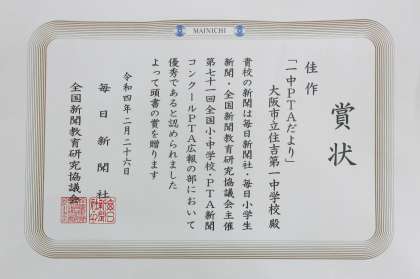 MAINICHI
賞状
佳作
「一中PTAだより」
大阪市立住吉第一中学校 殿
貴校の新聞は毎日新聞社・毎日小学生
新聞・全国新聞教育研究協議会主催
第七十一回全国小・中学校・PTA新聞
コンクールPTA広報の部において
優秀であると認められました
よって頭書の賞を贈ります
令和四年二月二十六日
毎日新聞社
全国新聞教育研究協議会